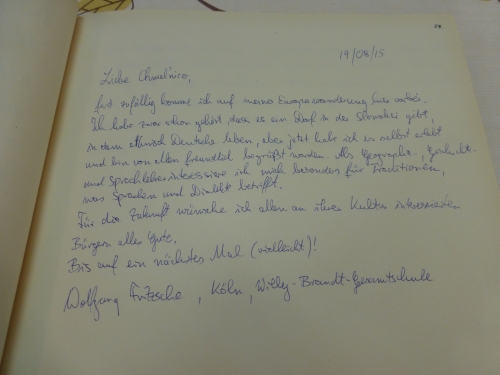 19/08/15
Liebe Chmel'nico,
fast zufällig komme ich auf meiner Europawanderung hier vorbei.
Ich habe zwar schon gehört, dass es ein Dorf in der Slowakei gibt,
in dem ethnisch Deutsche leben, aber jetzt hab ich es selbst erlebt
und bin von allen freundlich begrüßt worden. Als Geographie-, Geschichts-
und Sprachlehrer interessiere ich mich besonders für Traditionen,
was Sprachen und Dialekte betrifft.
Für die Zukunft wünsche ich allen an ihrer Kultur interessierten
Bürgern alles Gute.
Bis auf ein nächstes Mal (vielleicht)!
Wolfgang Fritzsche, Köln, Willy-Brandt-Gesamtschule